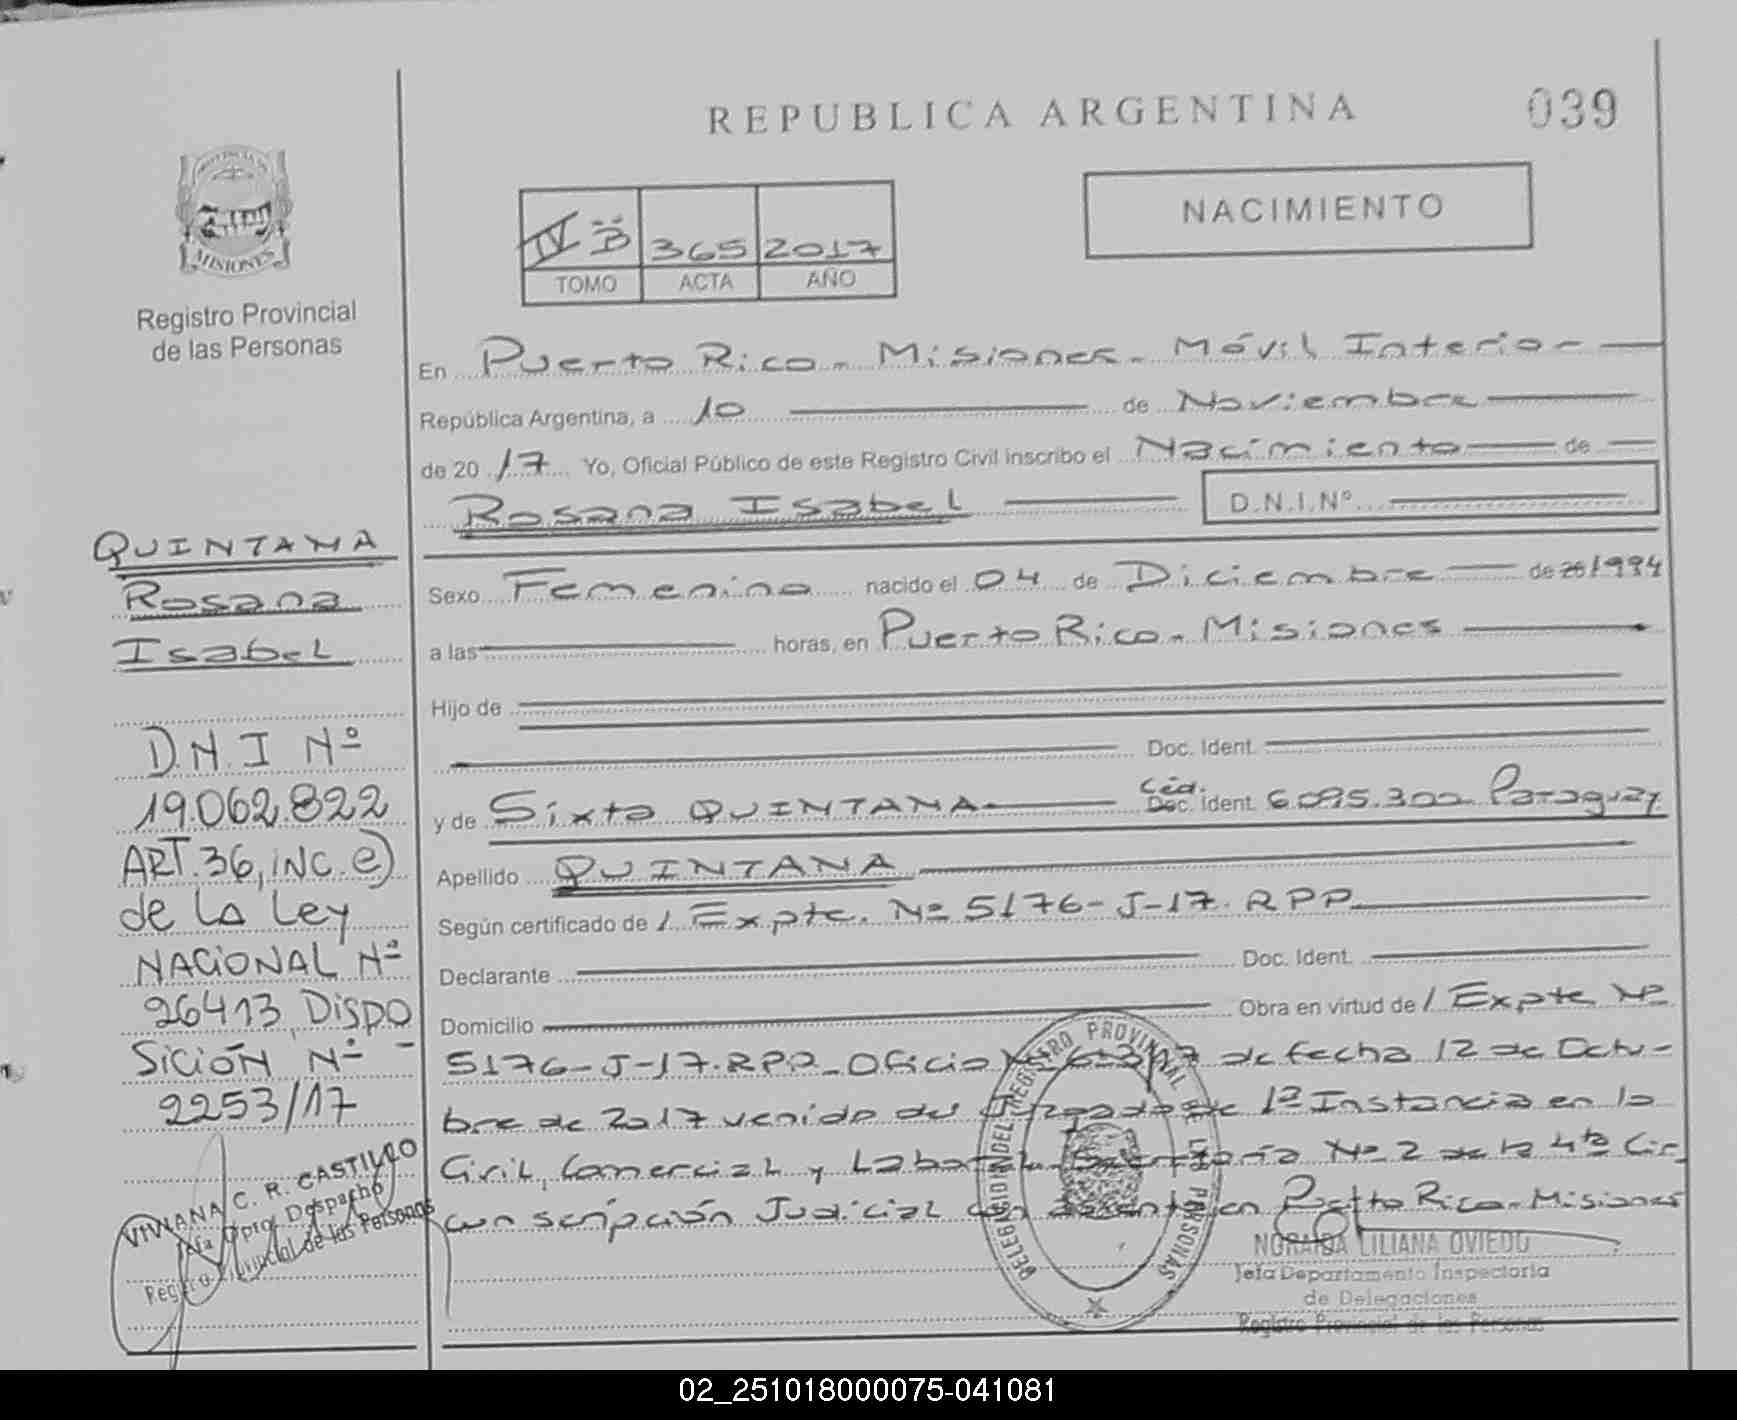 REPUBLICA ARGENTINA
039
PROVINCIA DE
MISIONES
Registro Provincial
de las Personas
NACIMIENTO
IV B 365 2017
TOMO ACTA AÑO
En Puerto Rico - Misiones - Móvil Interior
República Argentina, a 10 de Noviembre
de 2017 Yo, Oficial Público de este Registro Civil inscribo el Nacimiento de
Rosana Isabel D.N.I.Nº
Sexo Femenino nacido el 04 de Diciembre de 20 1994
a las horas, en Puerto Rico - Misiones
Hijo de
Doc. Ident.
y de Sixta QUINTANA Céd. Doc. Ident. 6.095.300 Paraguay
Apellido QUINTANA
Según certificado de / Expte. Nº 5176-J-17. RPP
Declarante Doc. Ident.
Domicilio Obra en virtud de / Expte Nº
5176-J-17.RPP - Oficio de fecha 12 de Octu-
bre de 2017 venido del Juzgado de 1ª Instancia en lo
Civil, Comercial y Laboral Secretaría Nº 2 de la 4ta Cir-
cunscripción Judicial con asiento en Puerto Rico - Misiones
QUINTANA
Rosana
Isabel
D.N.I Nº
19.062.822
ART.36, inc. e)
de la Ley
NACIONAL Nº
26413, Dispo
Sición Nº -
2253/17
VIVIANA C. R. CASTILLO
Jefa Dpto. Despacho
Registro Provincial de las Personas
DELEGACION DEL REGISTRO PROVINCIAL DE LAS PERSONAS
NORAIDA LILIANA OVIEDO
Jefa Departamento Inspectoria
de Delegaciones
Registro Provincial de las Personas
02_251018000075-041081